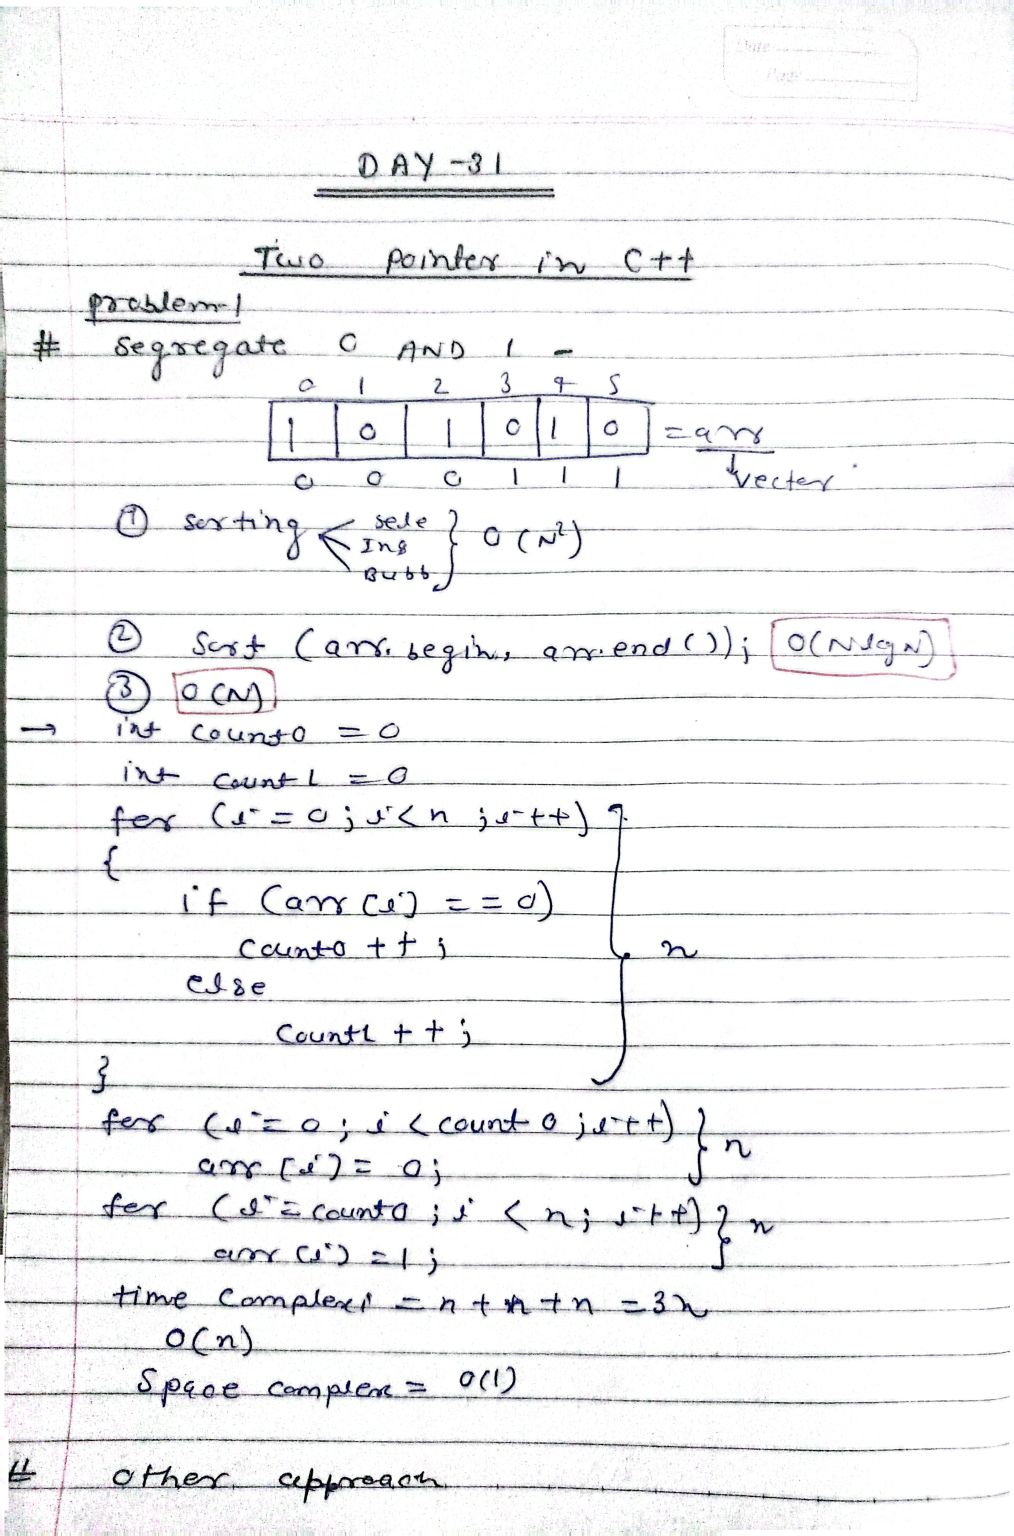 Date
Page
DAY-31
Two Pointer in C++
problem-1
# Segregate 0 AND 1 -
0 1 2 3 4 5
1 0 1 0 1 0 = arr
0 0 0 1 1 1 vector
① sorting sele
Ins } O(N²)
Bubb
② Sort (arr.begin, arr.end()); O(NlogN)
③ O(N)
→ int count0 = 0
int count1 = 0
for (i=0; i<n; i++)
{
if (arr[i] == 0)
count0 ++; n
else
count1 ++;
}
for (i=0; i < count0; i++) } n
arr[i] = 0;
for (i=count0; i < n; i++) } n
arr[i] = 1;
time complexi = n+n+n = 3n
O(n)
Space complex = O(1)
# other approach